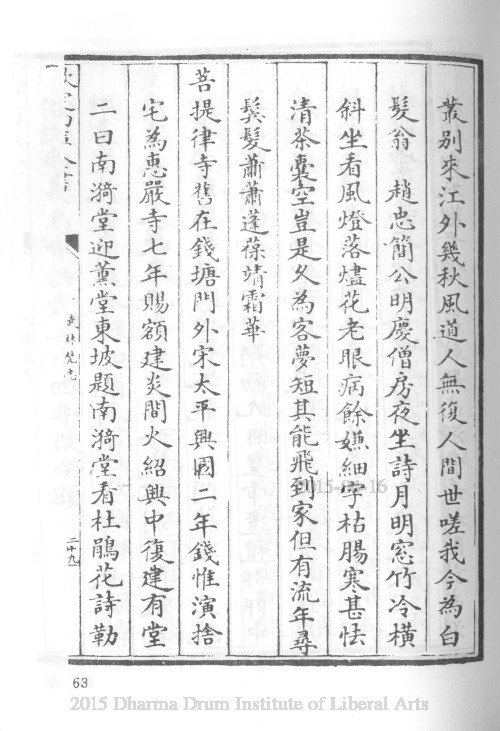 叢别來江外幾秋風道人無復人間世嗟我今為白
髮翁　趙忠簡公明慶僧房夜坐詩月明窓竹冷橫
斜坐看風燈落燼花老眼病餘嫌細字枯腸寒甚怯
清茶囊空豈是久為客夢短其能飛到家但有流年尋
鬂髮蕭蕭蓬葆靖霜華
菩提律寺舊在錢塘門外宋太平興國二年錢惟演捨
宅為惠嚴寺七年賜額建炎間火紹興中復建有堂
二曰南漪堂迎薫堂東坡題南漪堂看杜鵑花詩勒
欽定四庫全書
武林梵志
二十九
63
2015-04-16
2015 Dharma Drum Institute of Liberal Arts